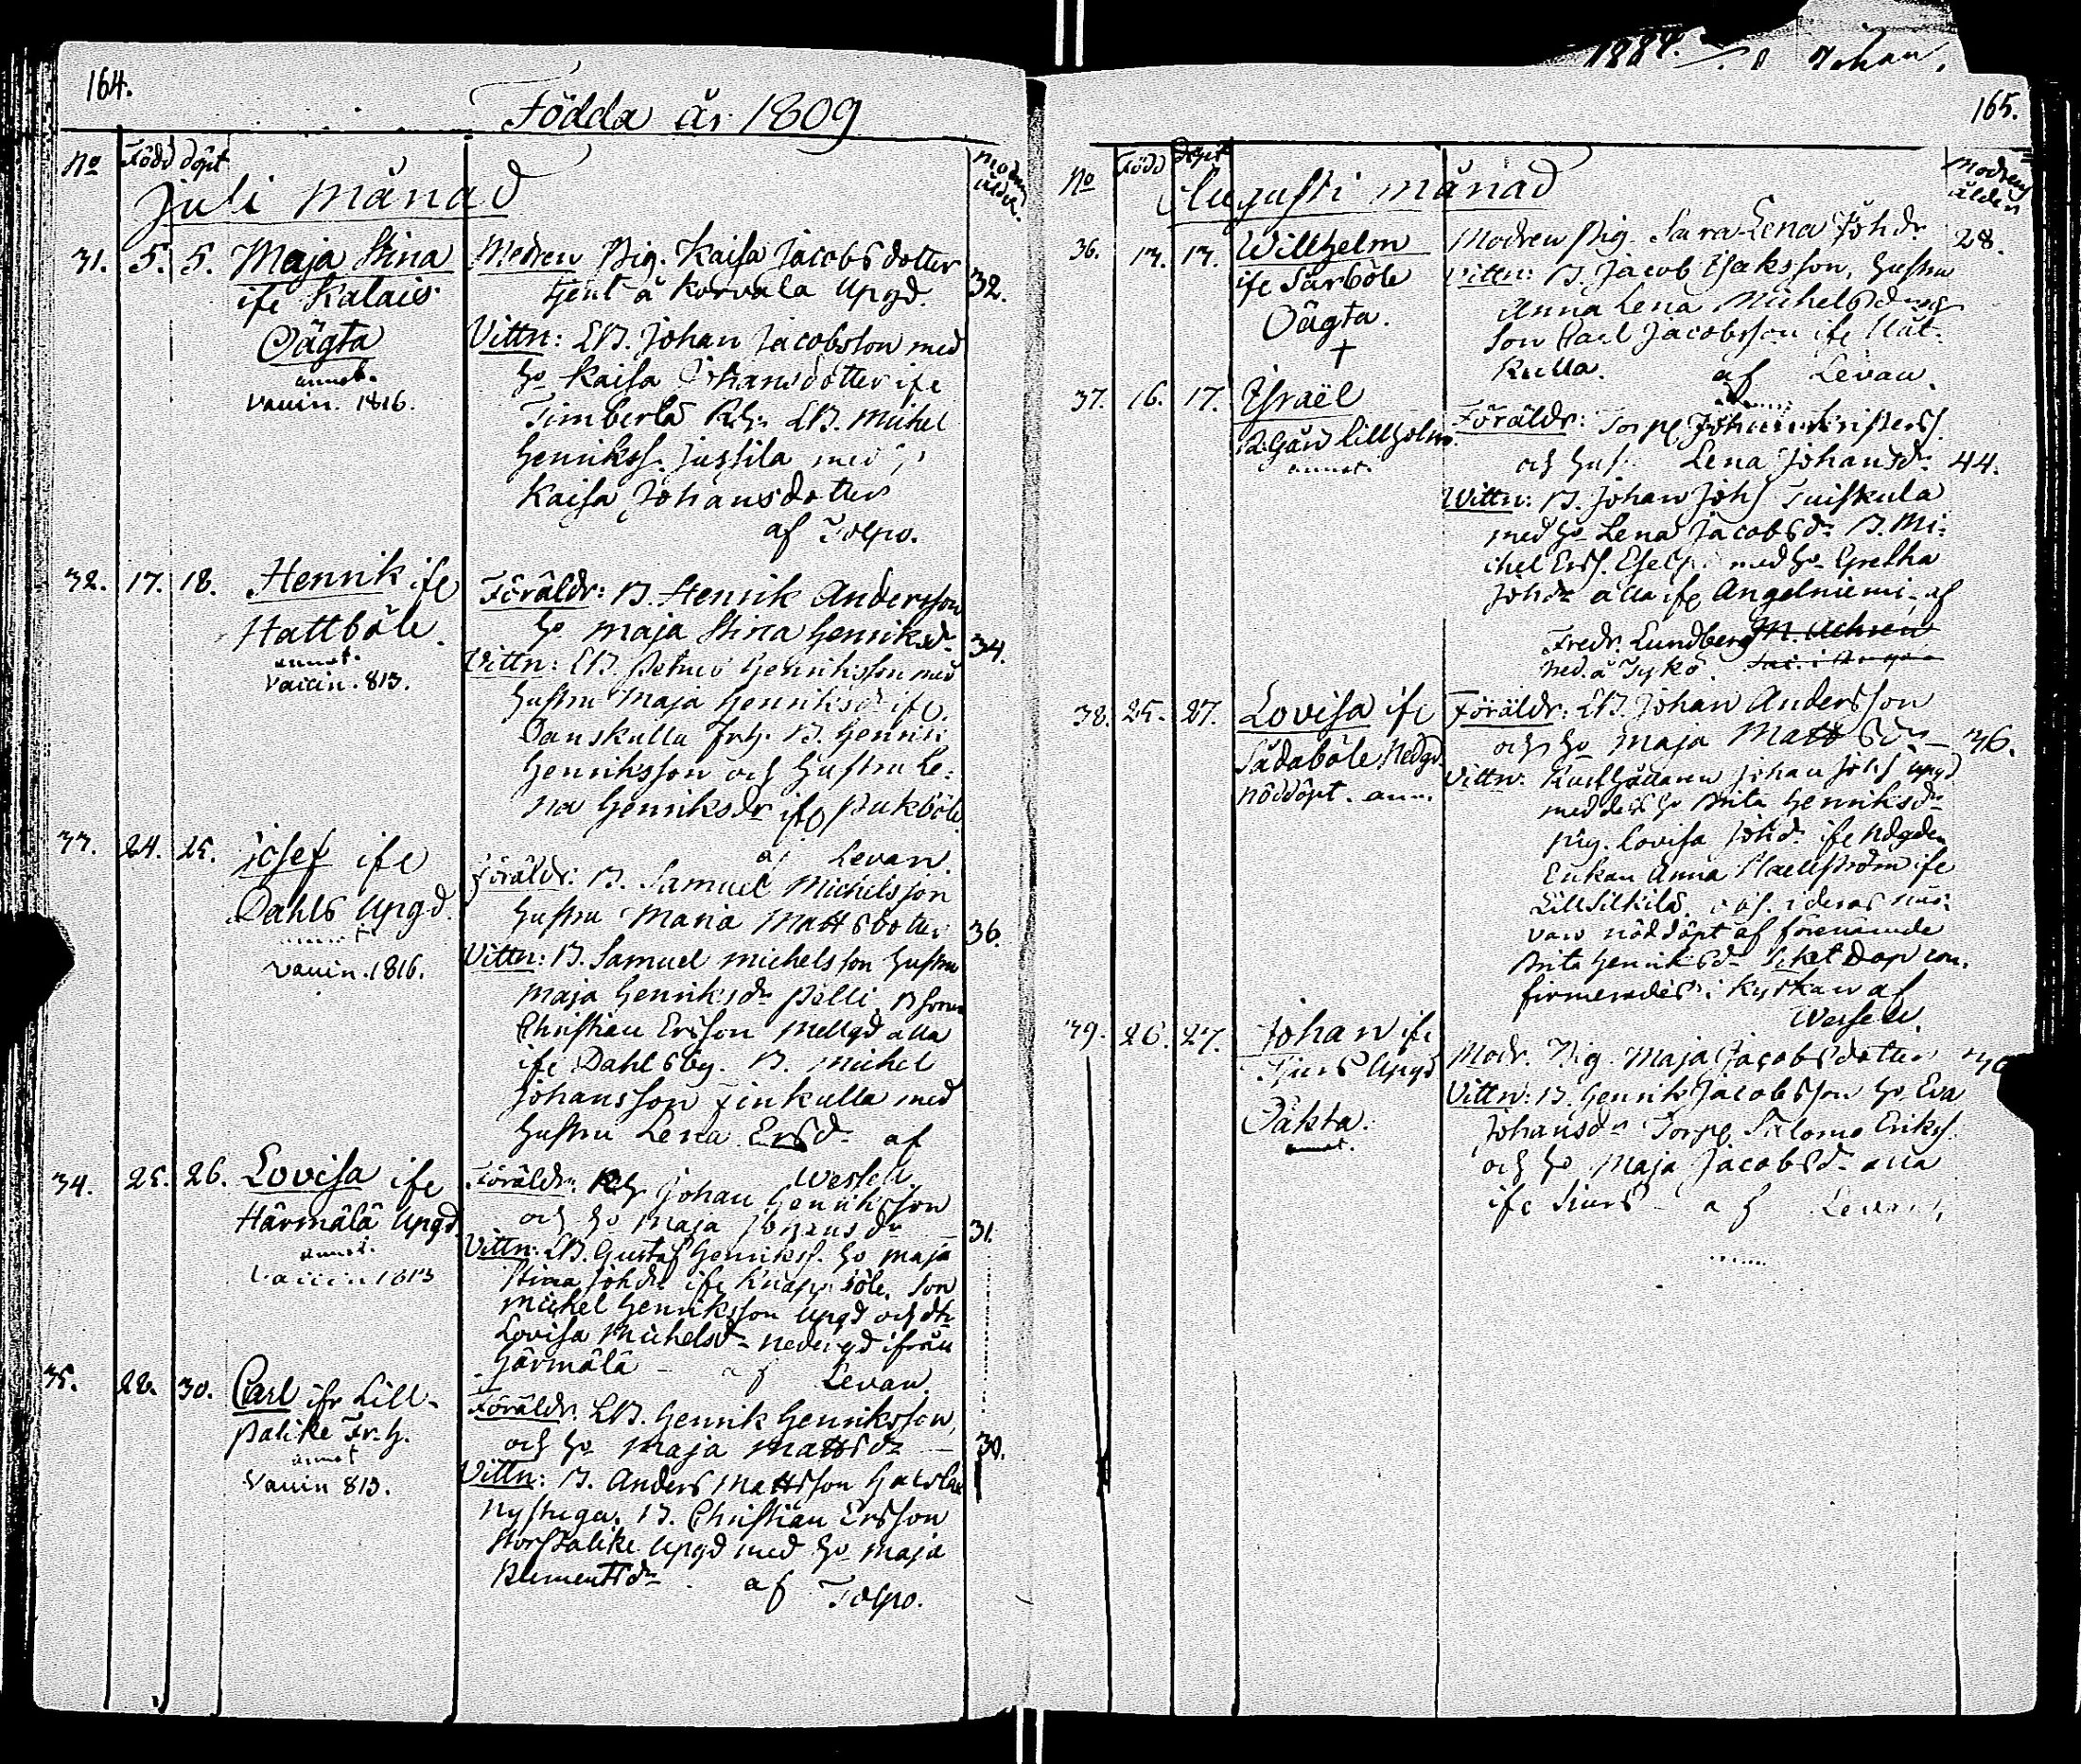 164.
Födda år 1809
No Född döpt
Modrens ålder.
Juli månad
31. 5. 5. Maja Stina
ifr Kalais
Oägta
annot.
Vaccin. 1816.
Modren Pig. Kaisa Jacobsdotter
tjent å Korvala Upgd. 32.
Vittn: LB. Johan Jacobsson med
Ho Kaisa Johansdotter ifr
Timberla LB. Michel
Henrikss. Jussila med
Kaisa Johansdotter
af Tolpo.
32. 17. 18. Henrik ifr
Hattböle.
annot.
Vaccin. 813.
Föräldr: B. Henrik Andersson
Ho Maja Stina Henriksdr 34.
Vittn: LB. Petter Henriksson med
Hustru Maja Henriksdr ifr
Danskulla Frh. B. Henrik
Henriksson och Hustru Le-
na Henriksdr ifr Pukböle.
af Levan.
33. 24. 25. Josef ifr
Dahls Upgd.
annot
Vaccin. 1816.
Föräldr: B. Samuel Michelsson
Hustru Maria Mattsdotter 36.
Vittn: B. Samuel Michelsson Hustru
Maja Henriksdr Pelli, B Sonen
Christian Ersson Mellgd alla
ifr Dahlsby. B. Michel
Johansson Finkulla med
Hustru Lena Ersdr af
Wessell.
34. 25. 26. Lovisa ifr
Härmälä Upgd.
annot.
Vaccin 1813
Föräldr. Johan Henriksson
och Ho Maja Johansdr 31.
Vittn: LB. Gustaf Henrikss. Ho Maja
Stina Johdr ifr Knapsböle, Son
Michel Henriksson Upgd och dtr
Lovisa Michelsdr Nedergd ifrån
Härmälä af Levan.
35. 28. 30. Carl ifr Lill-
Palike Fr. h.
annot
Vaccin 813.
Föräldr. LB. Henrik Henriksson,
och Ho Maja Mattsdr 30.
Vittn: B. Anders Mattsson
Nystuga. B. Christian Ersson
Storpalike Upgd med Ho Maja
Klementsdr af Tolpo.
1884. Johan,
165.
No Född döpt
Modrens ålder
Augusti månad
36. 13. 13. Willhelm
ifr Särböle
Oägta.
+
Modren Pig. Sara Lena Johdr 28.
Vittn: B. Jacob Isaksson, Hustru
Anna Lena Michelsdr
Son Carl Jacobsson ifr Nät-
kulla. af Levan.
37. 16. 17. Israël
Lillholm.
annot.
Föräldr: Torp. Johan Kristerss.
och Hust Lena Johansdr 44.
Vittn: B. Johan Johs Tuiskula
med Ho Lena Jacobsdr B. Mi-
chel Erss. med Ho Gretha
Johdr alla ifr Angelniemi, af
Fredr. Lundberg M. Achren
Ped. å Tykö
38. 25. 27. Lovisa ifr
Sådaböle Nedgd.
nöddöpt. ann.
Föräldr: LB. Johan Andersson
och Ho Maja Mattsdr 36.
Vittn: Johan Johs Upgd
med dess Ho Brita Henriksdr
Pig. Lovisa Johdr ifr Nedgden
Enkan Anna Hellström ifr
af. i deras när-
varo nöddöpt af förenämde
Brita Henriksdr dop con-
firmerades i Kyrkan af
Wessell.
39. 26. 27. Johan ifr
Upgd
Oäkta.
annot.
Modr. Pig. Maja Jacobsdotter
Vittn: B. Henrik Jacobsson Ho Eva
Johansdr Torp. Salomo Erikss.
och Ho Maja Jacobsdr alla
ifr af Levan.